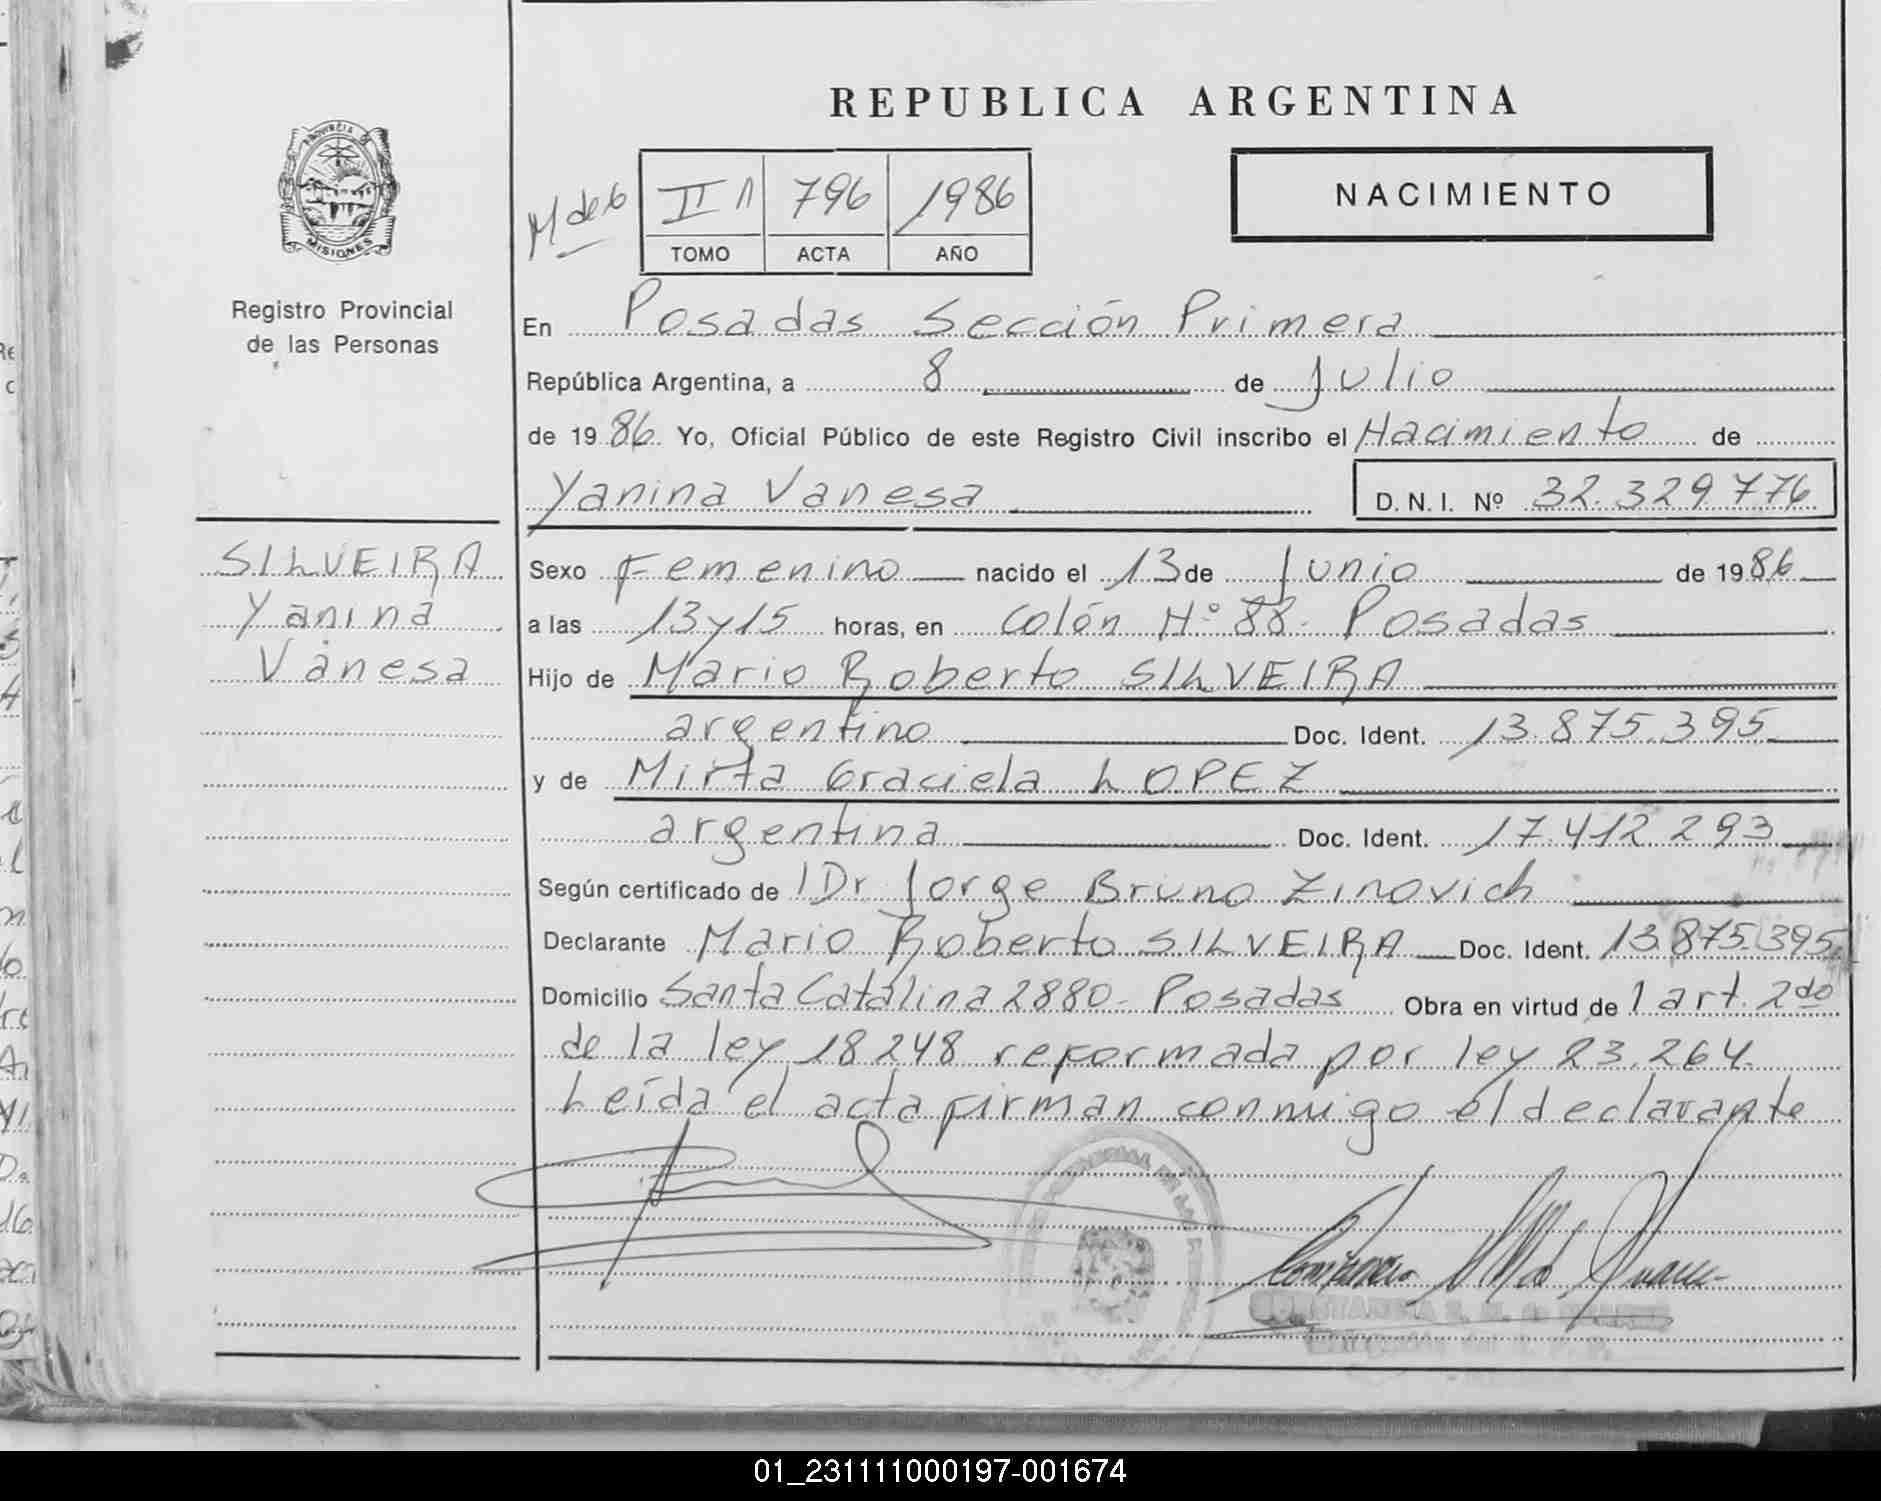 REPUBLICA ARGENTINA
PROVINCIA DE
MISIONES
Registro Provincial
de las Personas
M de 6
II 796 1986
TOMO ACTA AÑO
NACIMIENTO
En Posadas Sección Primera
República Argentina, a 8 de Julio
de 1986. Yo, Oficial Público de este Registro Civil inscribo el Nacimiento de
Yanina Vanesa D. N. I. Nº 32.329.776
SILVEIRA
Yanina
Vanesa
Sexo Femenino nacido el 13 de Junio de 1986
a las 13 y 15 horas, en Colón Nº 88. Posadas
Hijo de Mario Roberto SILVEIRA
argentino Doc. Ident. 13.875.395
y de Mirta Graciela LOPEZ
argentina Doc. Ident. 17.412.293
Según certificado de Dr Jorge Bruno Zinovich
Declarante Mario Roberto SILVEIRA Doc. Ident. 13.875.395
Domicilio Santa Catalina 2880 - Posadas Obra en virtud de l art. 2do
de la ley 18248 reformada por ley 23.264.
Leída el acta firman conmigo el declarante
01_231111000197-001674